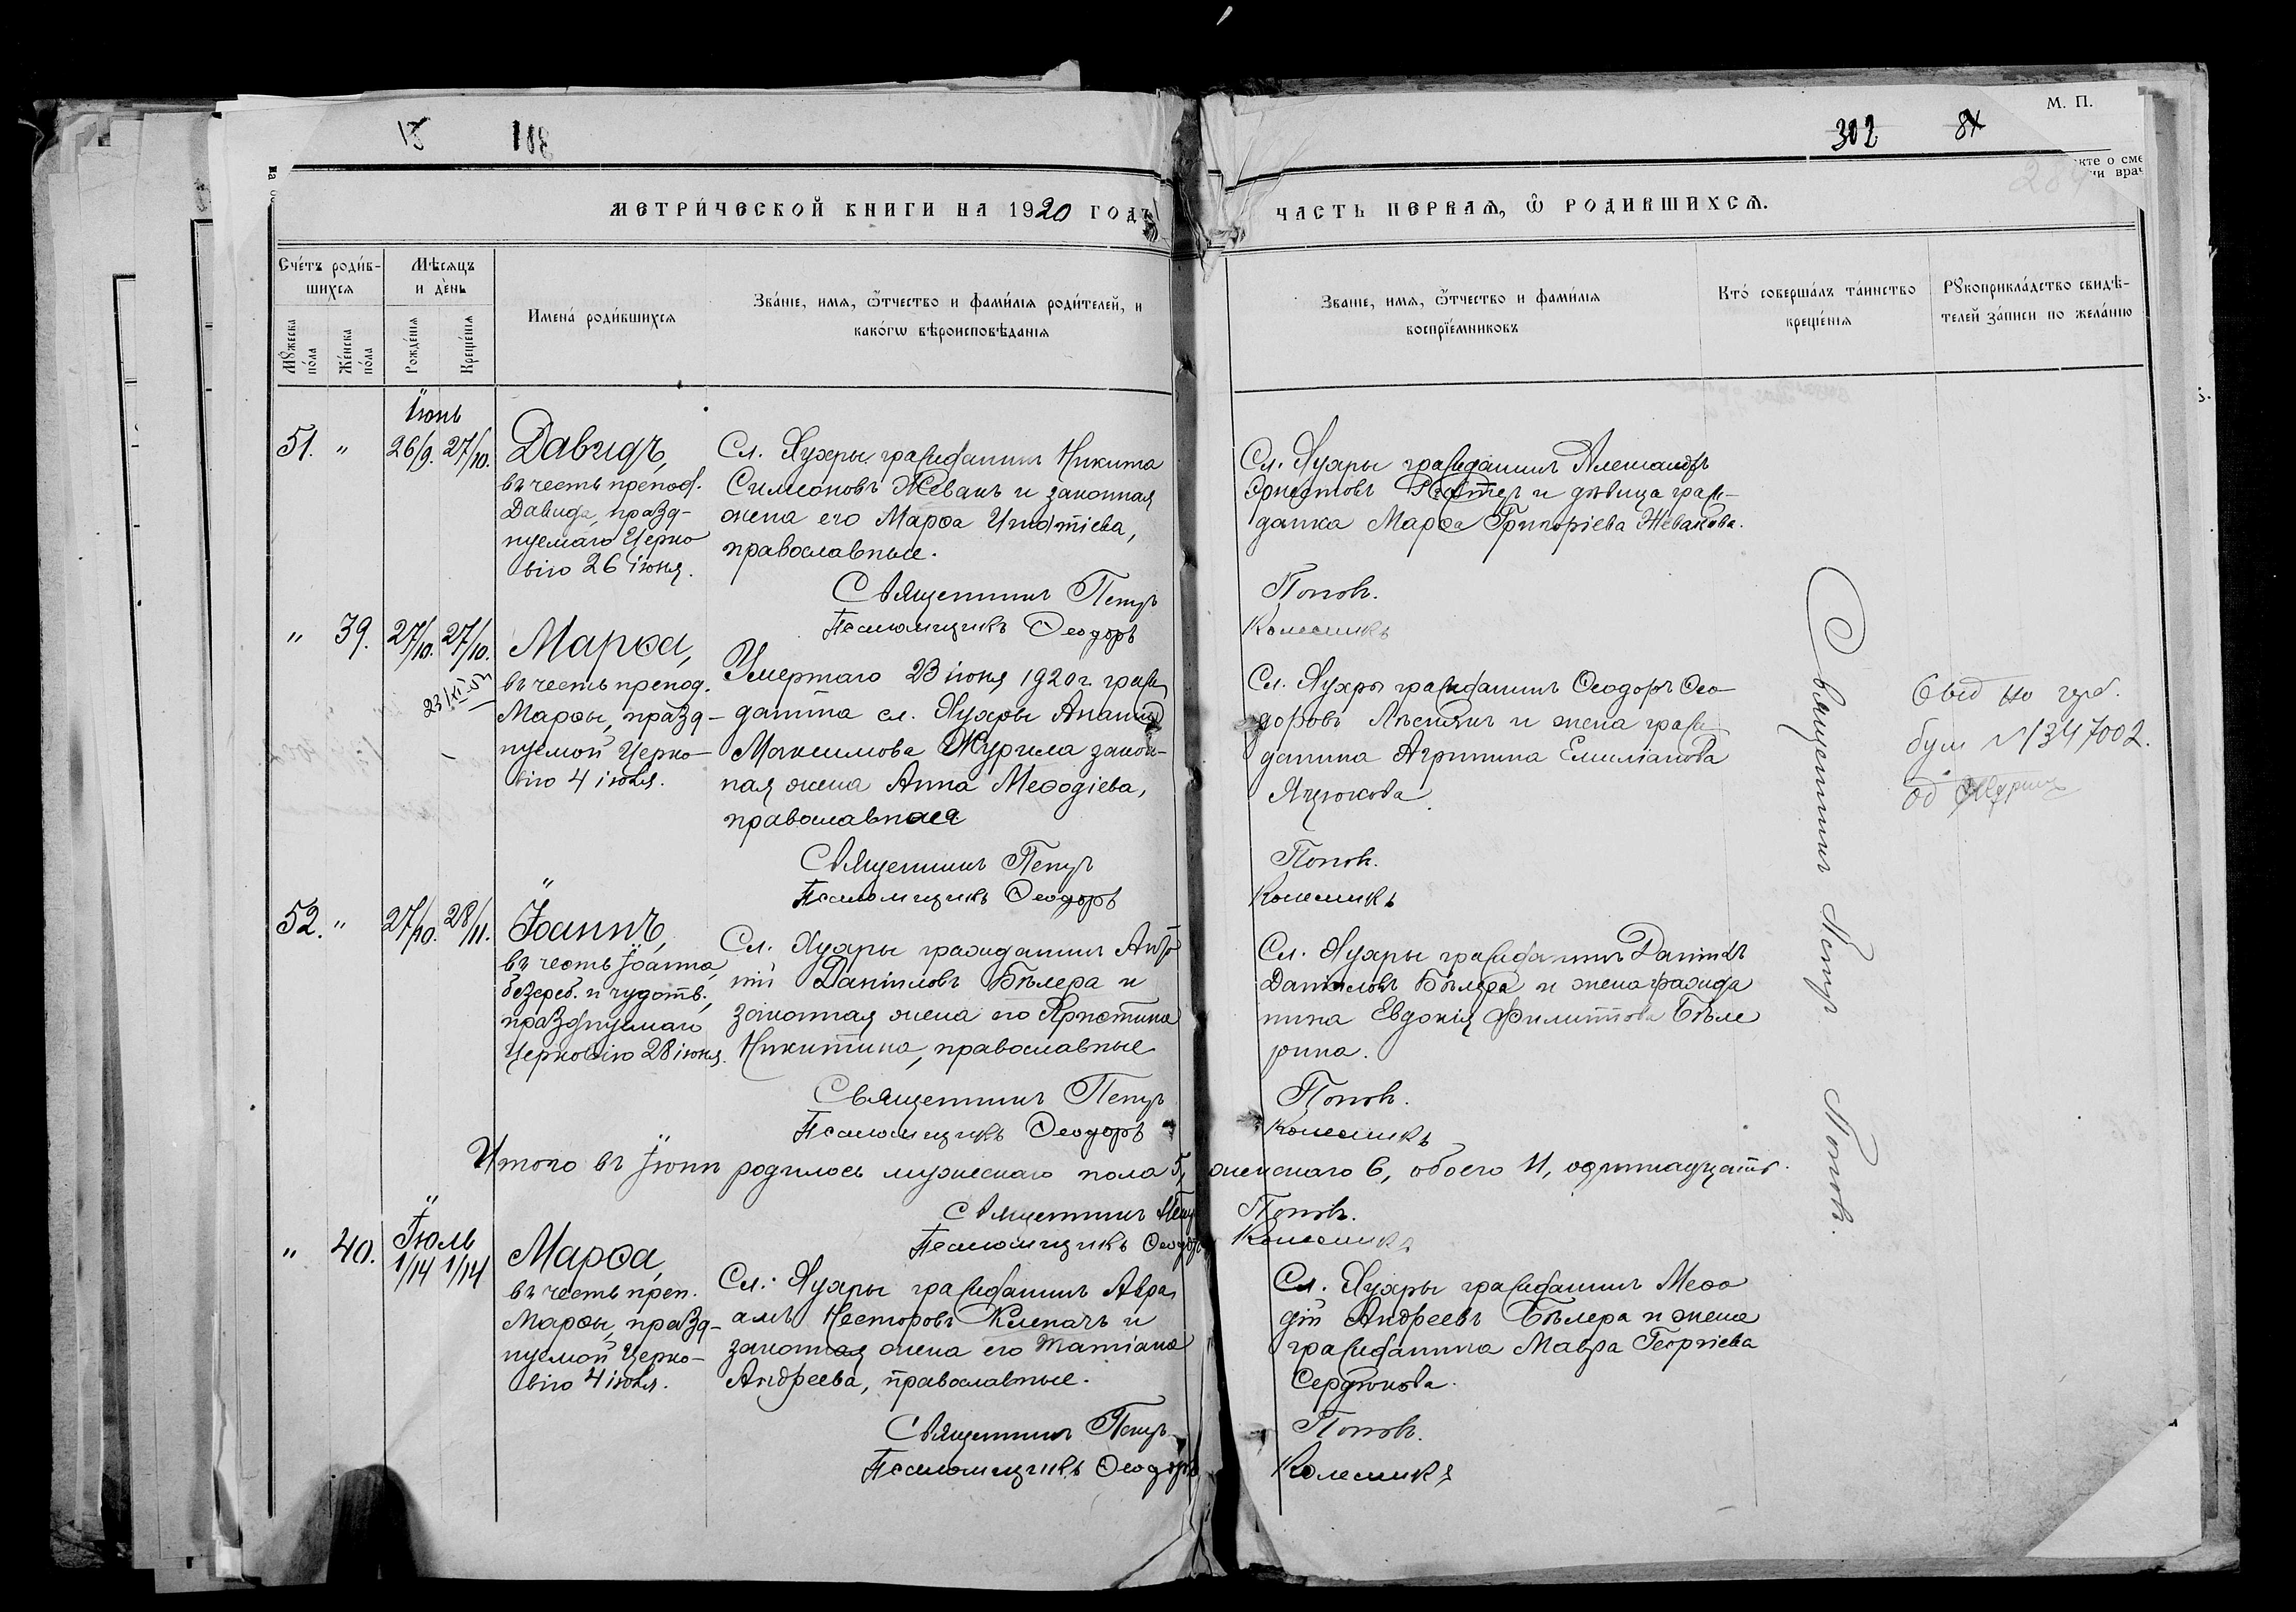 М. П.
302 84
МЕТРИ́ЧЕСКОЙ КНИГИ НА 1920 ГОДЪ
ЧАСТЬ ПЕРВАѦ, Ѿ РОДИВШИХСѦ.
Сче́тъ роди́в-
шихсѧ
Мꙋ́жеска
по́ла
Же́нска
по́ла
Мѣ́сѧцъ
и де́нь
Рожде́нїѧ
Креще́нїѧ
Имена́ роди́вшихсѧ
Зва́нїе, имѧ, ѻ҆́тчество и фами́лїѧ роди́телей, и
како́гѡ вѣроисповѣ́данїѧ
Званїе, имѧ, ѻ҆́тчество и фами́лїѧ
воспрїе́мниковъ
Кто́ соверша́лъ та́инство
креще́нїѧ
Рꙋкоприкла́дство свидѣ́-
телей за́писи по жела́нїю
Іюнь
51. " 26/9. 27/10.
Давидъ,
въ честь препод.
Давида, празд-
нуемаго Церко
вію 26 іюня.
Сл. Яухры гражданинъ Никита
Симеоновъ Жевакъ и законная
жена его Марѳа Игнатіева,
православные.
Священникъ Петръ
Псаломщикъ Ѳеодоръ
Сл. Яухры гражданинъ Александръ
Эрнестовъ и дѣвица граж-
данка Марѳа Григоріева Жевакова.
Поповъ.
Колесникъ
" 39. 27/10. 27/10.
Марѳа,
въ честь препод.
Марѳы, празд-
нуемой Церко-
вію 4 іюля.
Умершаго 23 іюня 1920 г. граж
данина сл. Яухры Ананіи
Максимова Журила закон-
ная жена Анна Меѳодіева,
православная
Священникъ Петръ
Псаломщикъ Ѳеодоръ
Сл. Яухры гражданинъ Ѳеодоръ Ѳео-
доровъ и жена граж
данина Агрипина Емиліанова
Яцюкова.
Поповъ.
Колесникъ
бум № 1347002.
52. " 27/10. 28/11.
Іоаннъ,
въ честь Іоанна,
безсреб. и чудотв.,
празднуемаго
Церковію 28 іюня.
Сл. Яухры гражданинъ
Даніиловъ Бѣлера и
законная жена его Христина
Никитина, православные
Священникъ Петръ
Псаломщикъ Ѳеодоръ
Сл. Яухры гражданинъ Даніилъ
Даніиловъ Бѣлера и жена гражда
нина Евдокія Филиппова Бѣле
рина.
Поповъ.
Колесникъ
Итого въ Іюнѣ родилось мужескаго пола 5, женскаго 6, обоего 11, одиннадцать.
Священникъ Петръ Поповъ.
Псаломщикъ Ѳеодоръ Колесникъ
Іюль
" 40. 1/14 1/14
Марѳа,
въ честь преп.
Марѳы, празд-
нуемой Церко-
вію 4 іюля.
Сл. Яухры гражданинъ Авра
амъ Несторовъ Клепачъ и
законная жена его Татіана
Андреева, православные.
Священникъ Петръ
Псаломщикъ Ѳеодоръ
Сл. Яухры гражданинъ Меѳо
дій Андреевъ Бѣлера и жена
гражданина Мавра Георгіева
Сердюкова.
Поповъ.
Колесникъ
Священникъ Петръ Поповъ.